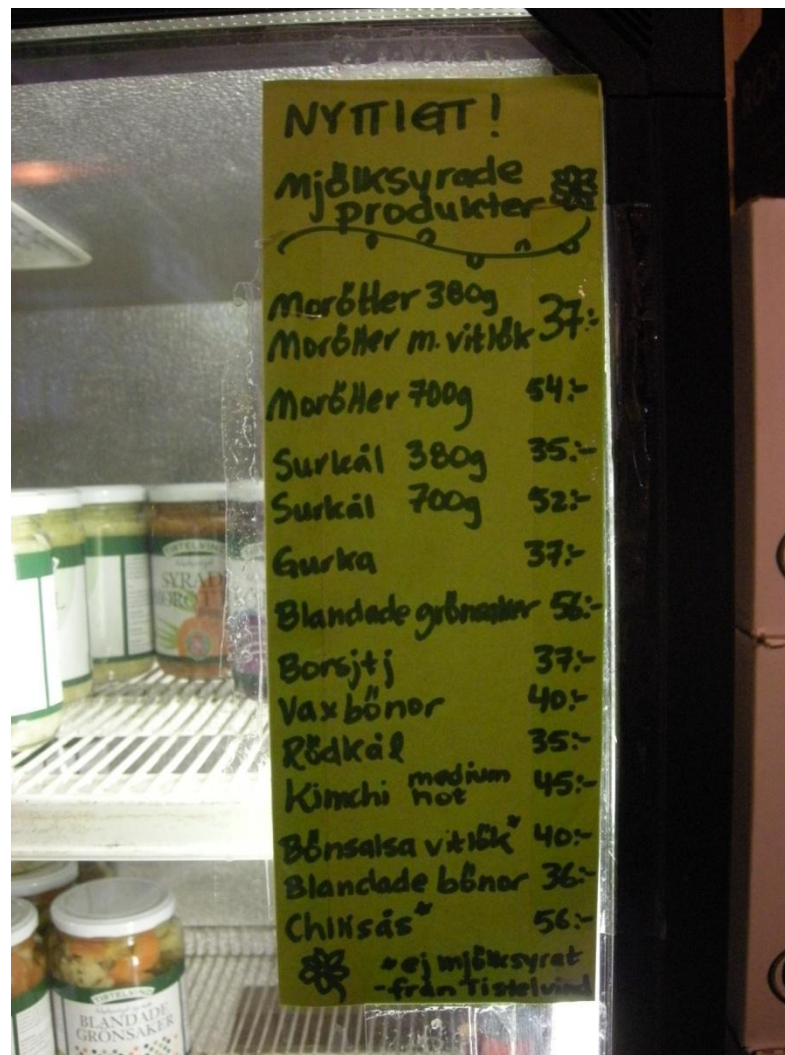 NYTTIGT!
Mjölksyrade
produkter
Morötter 380g
Morötter m. vitlök 37:-
Morötter 700g 54:-
Surkål 380g 35:-
Surkål 700g 52:-
Gurka 37:-
Blandade grönsaker 56:-
Borsjtj 37:-
Vaxbönor 40:-
Rödkål 35:-
Kimchi medium
hot 45:-
Bönsalsa vitlök* 40:-
Blandade bönor 36:-
Chilisås* 56:-
* ej mjölksyrat
- från Tistelvind
TISTELVIND
SYRADE
MOROTT
TISTELVIND
BLANDADE
GRÖNSAKER